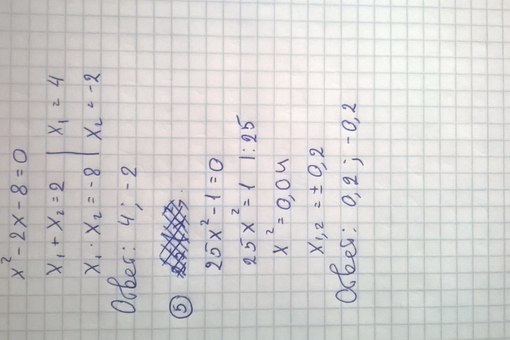 x² - 2x - 8 = 0
x₁ + x₂ = 2 | x₁ = 4
x₁ · x₂ = -8 | x₂ = -2
Ответ: 4; -2
⑤
25x² - 1 = 0
25x² = 1 |:25
x² = 0,04
x₁,₂ = ± 0,2
Ответ: 0,2; -0,2